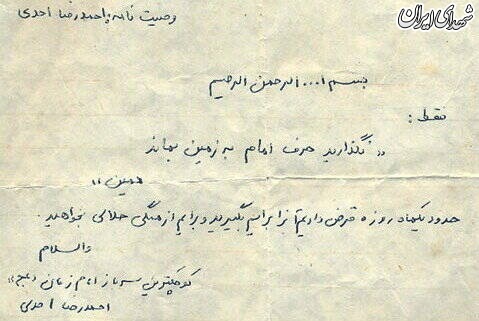 شهدای ایران
وصیت نامه احمد رضا احدی
بسم ا... الرحمن الرحیم
فقط :
« نگذارید حرف امام به زمین بماند
همین »
حدود یکماه روزه قرض دارم آنرا برایم بگیرید و برایم از همگی حلالی بخواهید.
والسلام
کوچکترین سرباز امام زمان (عج)
احمد رضا احدی